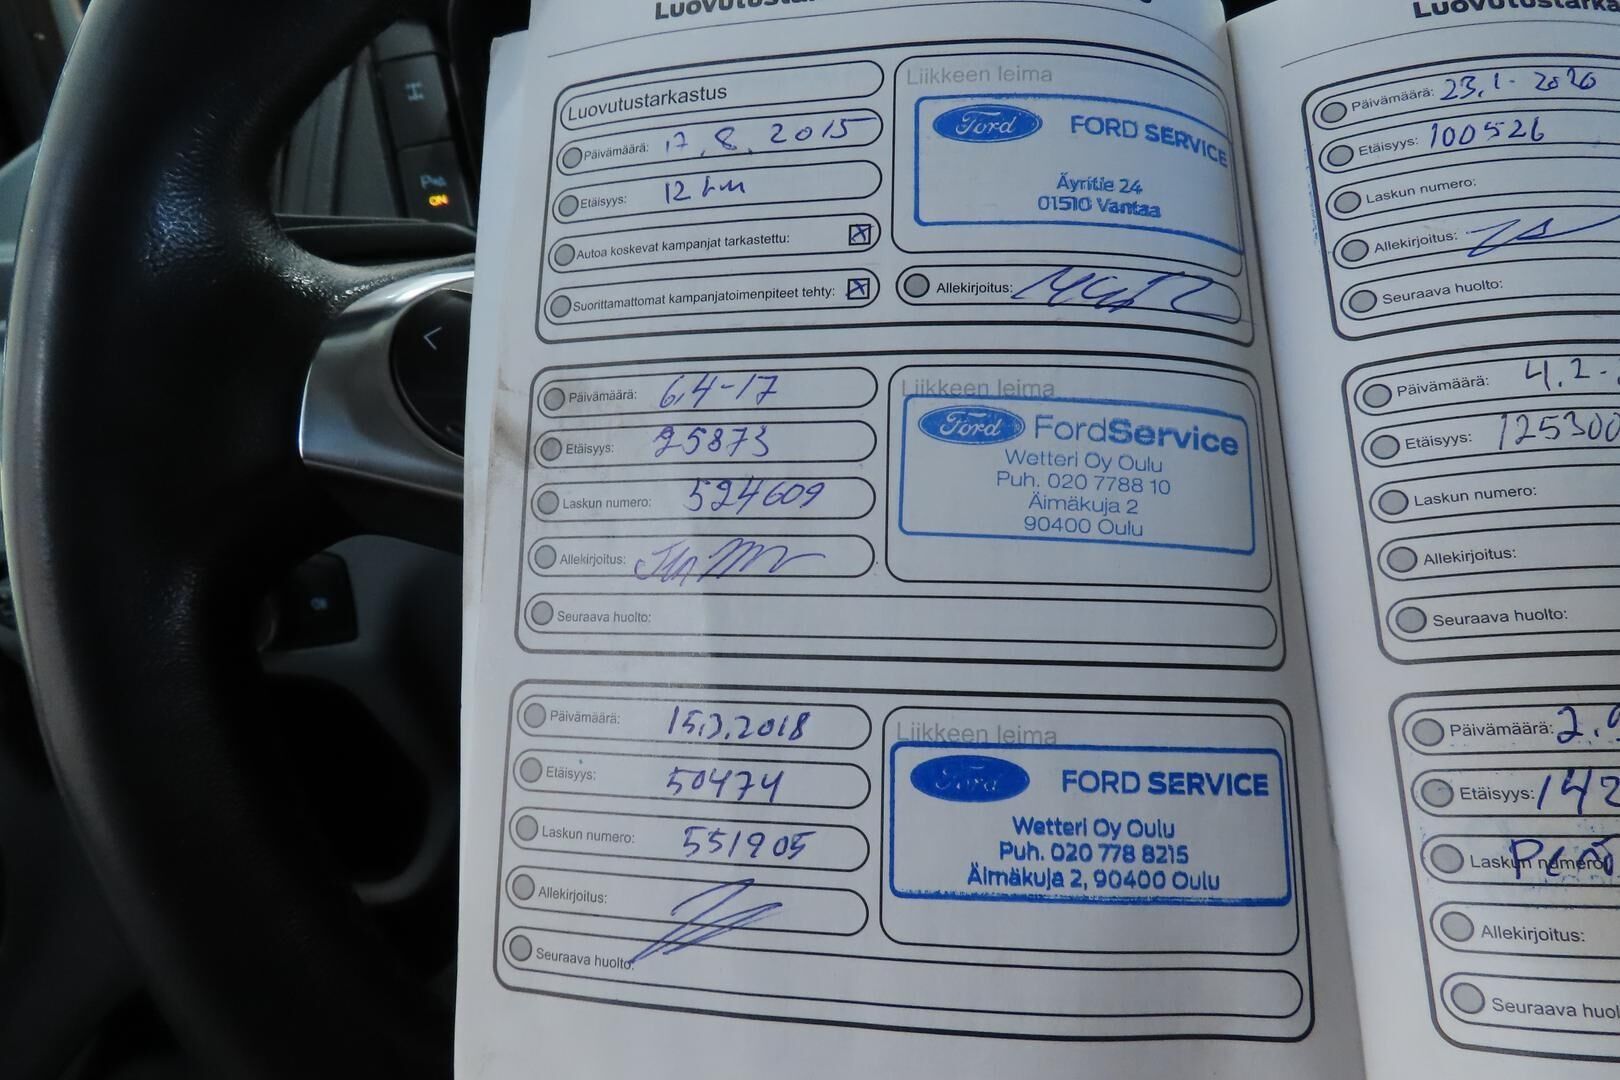 Luovutustarkastus
Päivämäärä: 17.8.2015
Etäisyys: 12 km
Autoa koskevat kampanjat tarkastettu: ☒
Suorittamattomat kampanjatoimenpiteet tehty: ☒
Liikkeen leima
Ford FORD SERVICE
Äyritie 24
01510 Vantaa
Allekirjoitus:
Päivämäärä: 6.4-17
Etäisyys: 25873
Laskun numero: 524609
Allekirjoitus:
Seuraava huolto:
Liikkeen leima
Ford FordService
Wetteri Oy Oulu
Puh. 020 7788 10
Äimäkuja 2
90400 Oulu
Päivämäärä: 15.3.2018
Etäisyys: 50474
Laskun numero: 551905
Allekirjoitus:
Seuraava huolto:
Liikkeen leima
Ford FORD SERVICE
Wetteri Oy Oulu
Puh. 020 778 8215
Äimäkuja 2, 90400 Oulu
Päivämäärä: 23.1.2020
Etäisyys: 100526
Laskun numero:
Allekirjoitus:
Seuraava huolto:
Päivämäärä: 4.2.
Etäisyys: 125300
Laskun numero:
Allekirjoitus:
Seuraava huolto:
Päivämäärä: 2.
Etäisyys: 142
Laskun numero:
Allekirjoitus:
Seuraava
ON